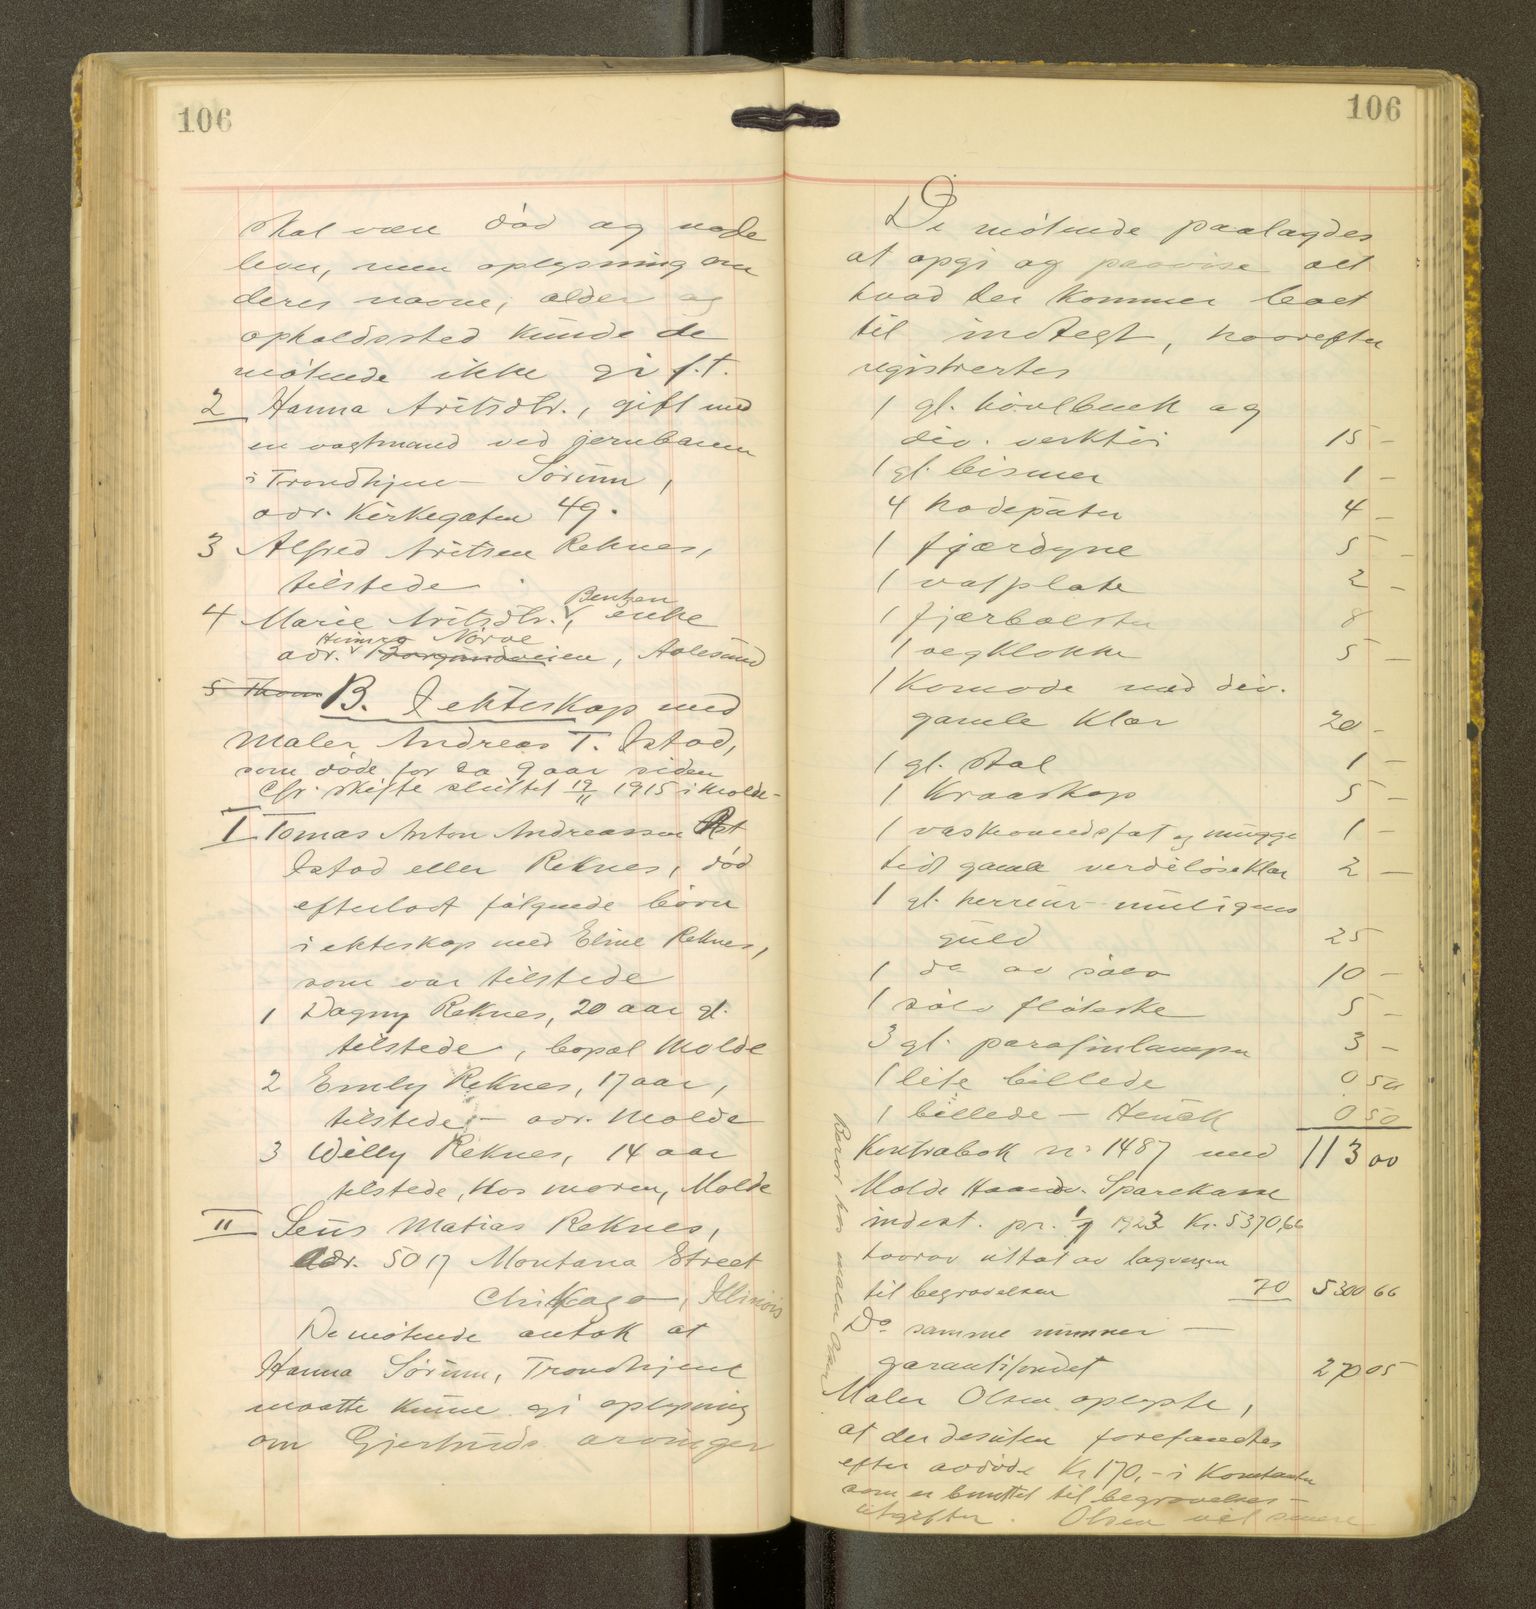 106
skal være død og nogle
lever, men oplysning om
deres navne, alder og
opholdssted kunde de
møtende ikke gi f.t.
2 Hanna Aritsdtr., gift med
en vagtmand ved jernbanen
i Trondhjem – Sørum,
adr. Kirkegaten 49.
3 Alfred Aritsen Reknes,
tilstede
Bentzen
4 Marie Aritsdtr., enke
Nørve
adr. Borgundveien, Aalesund
5 Thom B. I ekteskap med
maler Andreas T. Istad,
som døde for ca 9 aar siden
Cfr. skifte sluttet 19/11 1915 i Molde
I Tomas Anton Andreassen
Istad eller Reknes, død
efterlot følgende børn
i ekteskap med Eline Reknes,
som var tilstede
1 Dagny Reknes, 20 aar gl.
tilstede, bopæl Molde
2 Emly Reknes, 17 aar,
tilstede – adr. Molde
3 Willy Reknes, 14 aar
tilstede, hos moren, Molde
II Seus Matias Reknes,
adr. 5017 Montana Street
Chikago, Illinois
De møtende antok at
Hanna Sørum, Trondhjem
maatte kunne gi oplysning
om Gjertruds arvinger
106
De møtende paalagdes
at opgi og paavise alt
hvad der kommer boet
til indtegt, hvorefter
registrertes
1 gl. høvlbenk og
div. verktøi 15 –
1 gl. bismer 1 –
4 hodeputer 4 –
1 fjærdyne 5 –
1 vatplate 2 –
1 fjærbolster 8
1 vegklokke 5 –
1 komode med div.
gamle klær 20 –
1 gl. stol 1 –
1 kraaskap 5 –
1 vaskevandsfat og mugge 1 –
ticl gamle verdiløse klær 2 –
1 gl. herreur muligens
guld 25
1 do av sølv 10 –
1 sølv fløteske 5 –
3 gl. parafinlamper 3 –
1 lite billede 0 50
1 billede – 0 50
Kontrabok no 1487 med 113 00
Molde Haandv. Sparekasse
indest. pr. 1/7 1923 Kr. 5370,66
hvorav uttat av lagvergen
til begravelsen 70 5300 66
Do samme nummer –
garantifondet 270 05
Maler Olsen oplyste,
at der desuten forefandtes
efter avdøde Kr 170,– i kontanter
som er benyttet til begravelses–
utgifter. Olsen vil senere
Beror hos maler Olsen